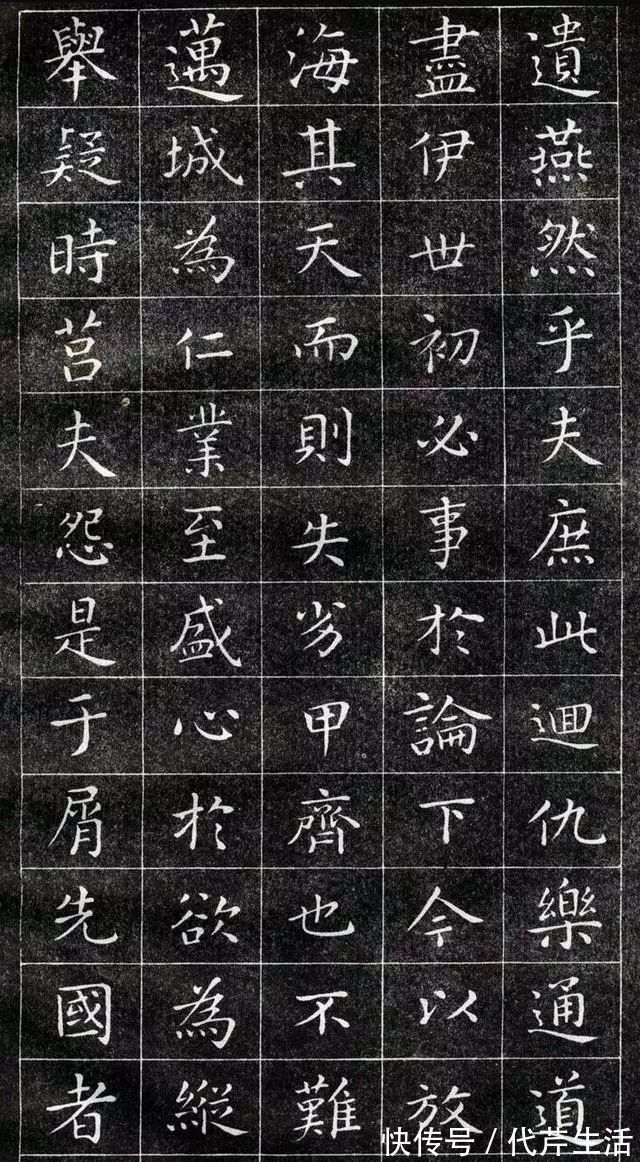 遺燕然乎夫庶此迴仇樂通道
盡伊世初必事於論下今以放
海其天而則失劣甲齊也不難
邁城為仁業至盛心於欲為縱
舉疑時莒夫怨是于屑先國者
快传号/代芹生活